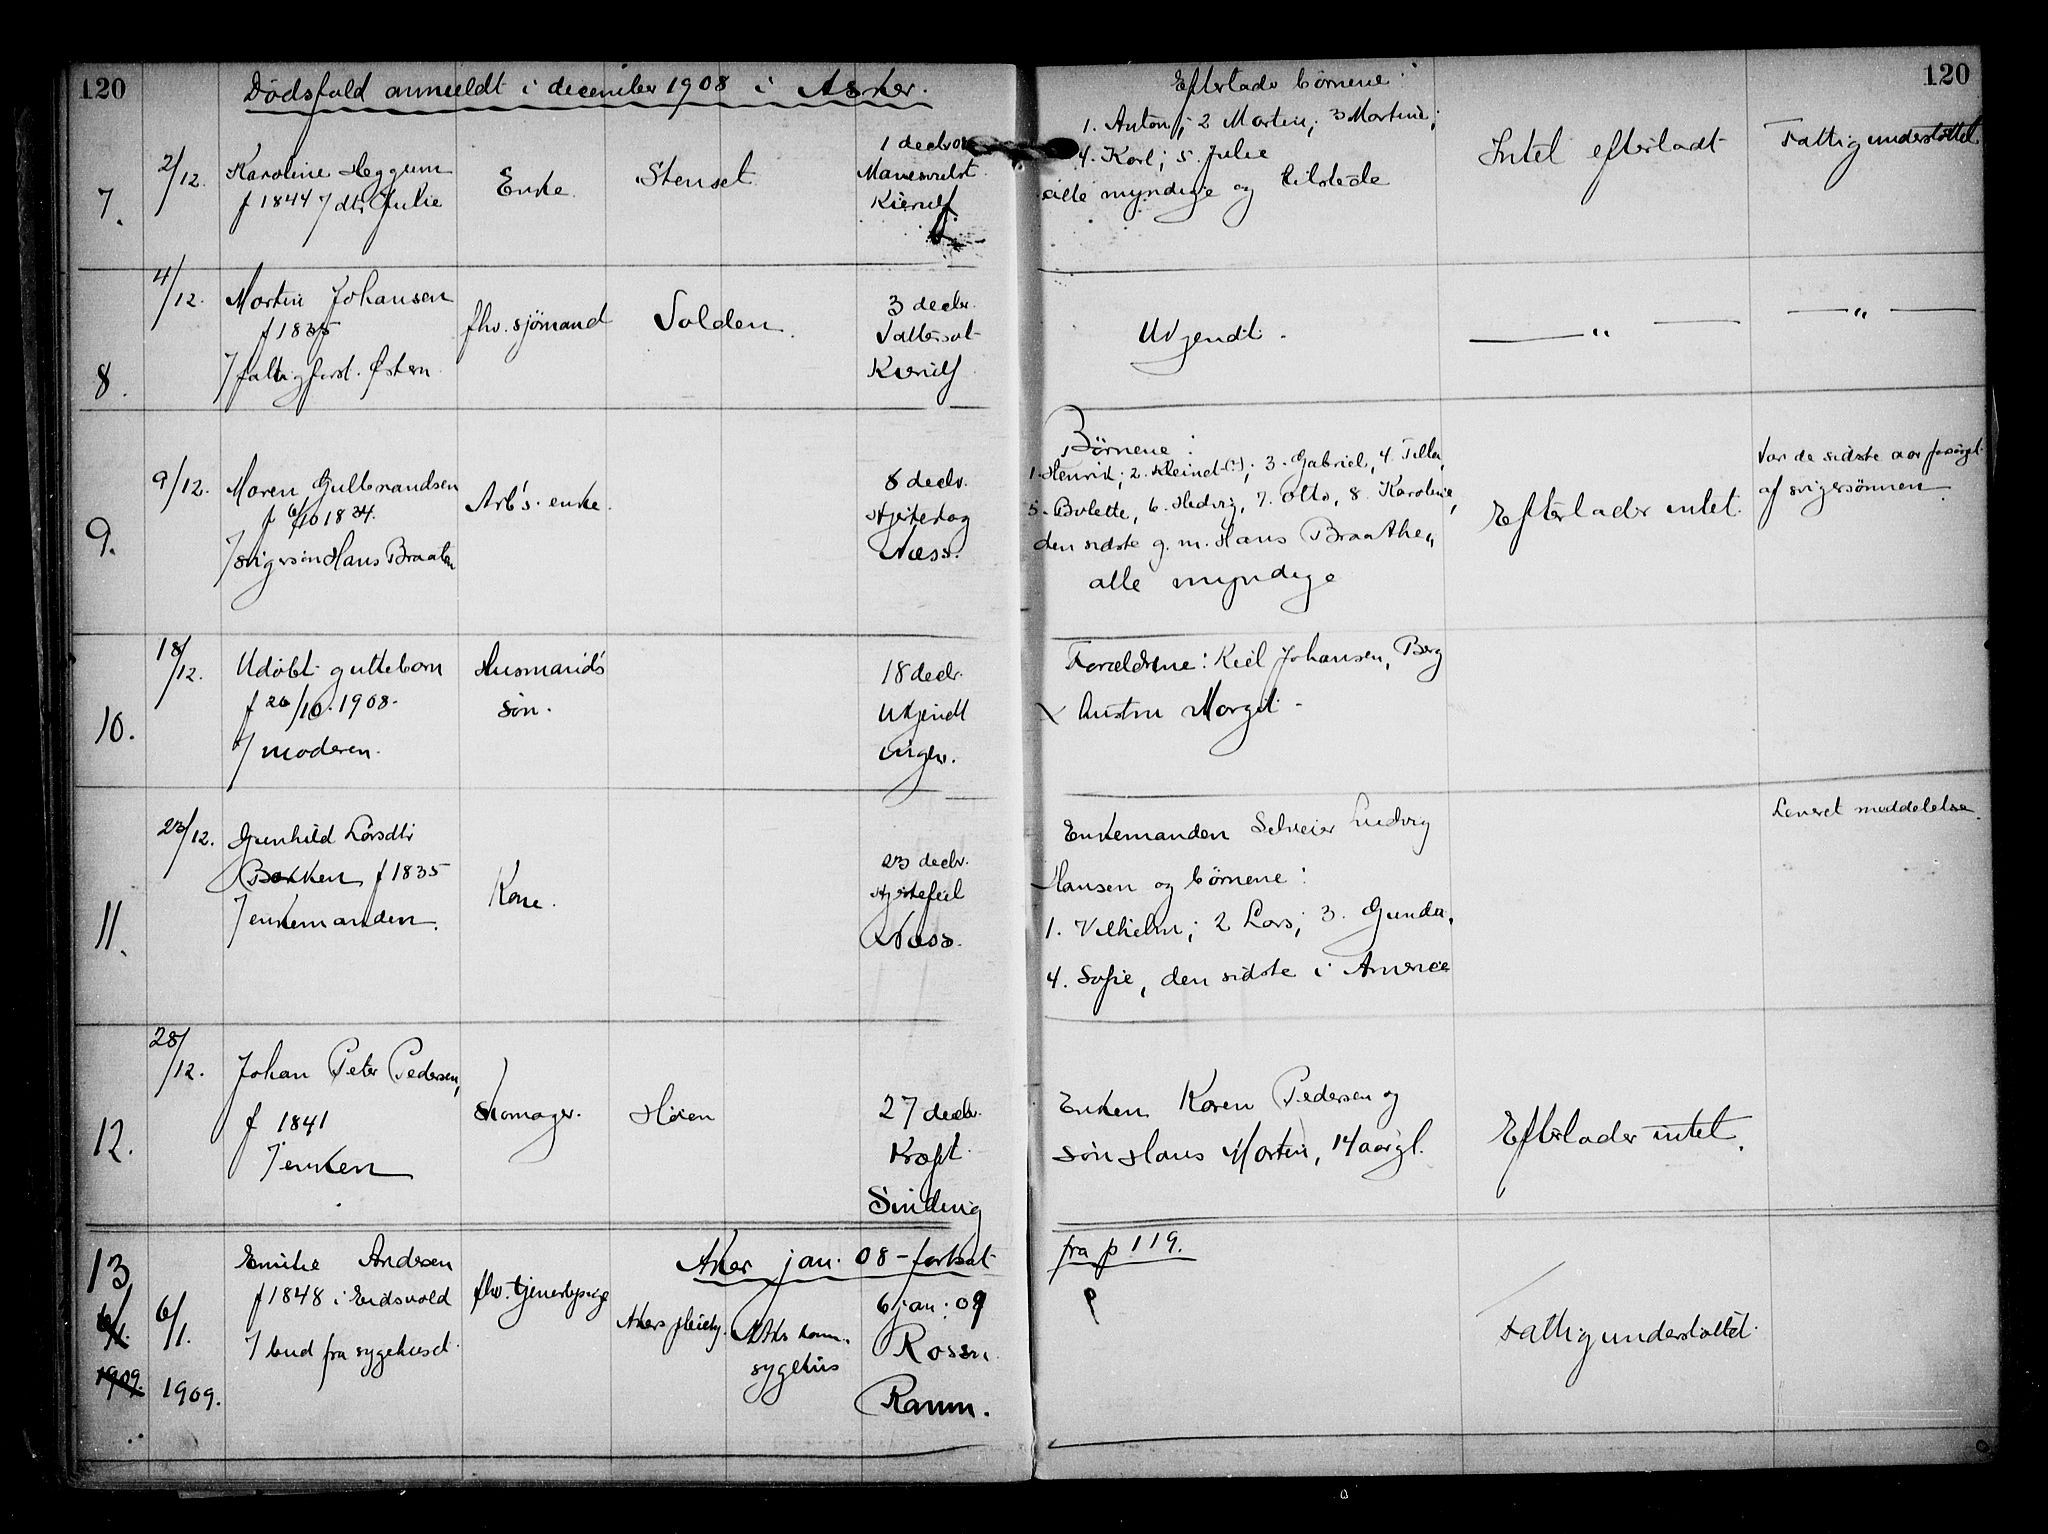 120
Dødsfald anmeldt i december 1908 i Asker.
7.
2/12.
Karoline Heggum
f 1844 / dtr Julie
Enke
Stenset
1 decbr 08
Kierulf
Efterlade børnene:
1. Anton; 2 Martin; 3 Martine;
4. Karl; 5. Julie
alle myndige og tilstede
Intet efterladt
Fattigunderstøttet
120
8.
4/12.
Martin Johansen
f 1835
/ fattigforst. Østern
fhv. sjømand
Solden.
3 decbr.
Kierulf
Ukjendt.
— " —
— " —
9.
9/12.
Maren Gulbrandsen
f 6/10 1834.
/ svigersøn Hans Braaten
Arb's. enke.
8 decbr.
Hjerteslag
Næss.
Børnene:
1. Henrik; 2. Meinct (?); 3. Gabriel, 4. Tilla,
5. Bolette, 6. Hedvig, 7. Otto, 8. Karoline,
den sidste g. m. Hans Braathen
alle myndige
Efterlader intet.
Var de sidste aar forsørget
af svigersønnen.
10.
18/12.
Udøbt guttebarn
f 26/10. 1908.
/ moderen.
Husmands
søn.
18 decbr.
Ukjendt
ingen.
Forældrene: Kiel Johansen, Berg
Hustru Marget.
11.
23/12.
Gunhild Larsdtr
Bakken f 1835
/ enkemanden.
Kone.
23 decbr.
Hjertefeil
Næss.
Enkemanden Selveier Ludvig
Hansen og børnene:
1. Vilhelm; 2 Lars; 3. Gunda,
4. Sofie, den sidste i America
Leveret meddelelse.
12.
28/12.
Johan Peter Pedersen,
f 1841
/ enken
Skomager.
Høien
27 decbr.
Kræft.
Sinding
Enken Karen Pedersen og
søn Hans Martin, 14 aar gl.
Efterlader intet.
13
6/1.
1909.
6/1.
1909.
Emilie Andersen
f 1848 i Eidsvold
/ bud fra sygehuset
fhv. tjenestepige
Aker jan. 08 – fortsat
fra p 119.
Akers pleieh.
Akers kom.
sygehus
6 jan. 09
Rosen
Ramm.
?
Fattigunderstøttet.